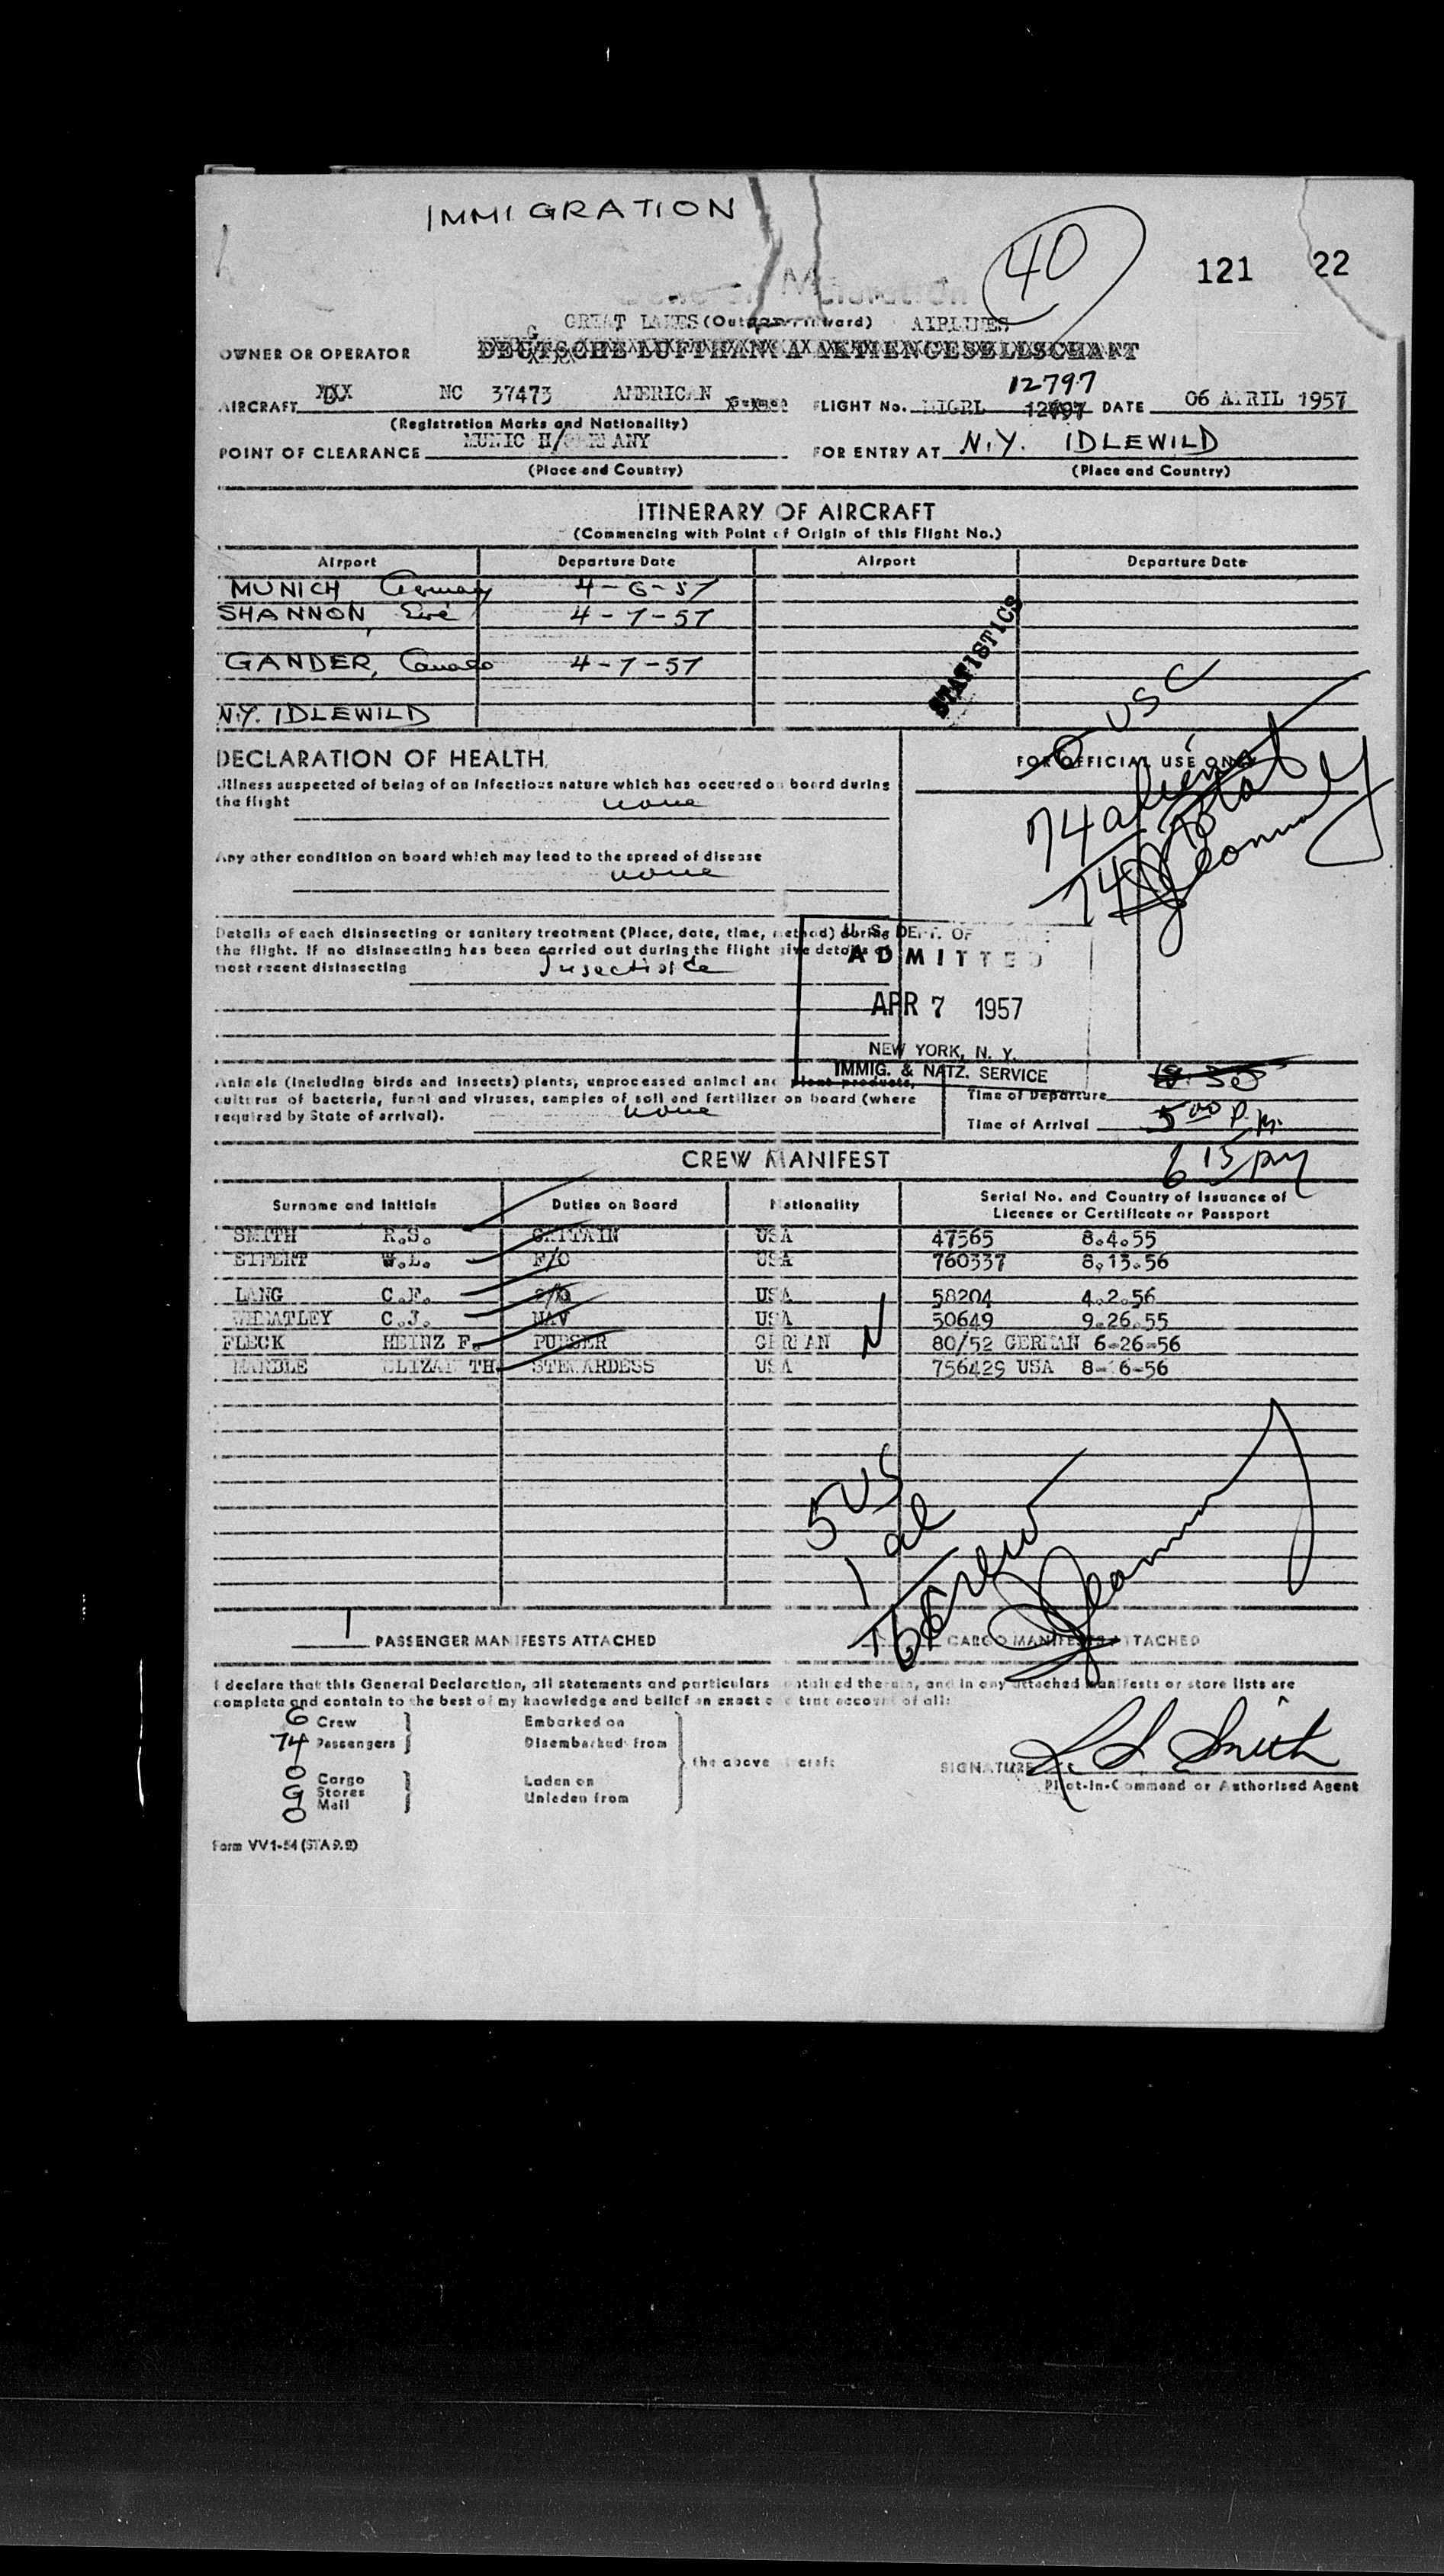 IMMIGRATION
40
121 22
GREAT LAKES (Outward/Inward) AIRLINES
OWNER OR OPERATOR DEUTSCHE LUFTHANSA AKTIENGESELLSCHAFT
12797
AIRCRAFT NC 37473 AMERICAN German FLIGHT No. 12797 DATE 06 APRIL 1957
(Registration Marks and Nationality)
POINT OF CLEARANCE MUNIC H/GERMANY FOR ENTRY AT N.Y. IDLEWILD
(Place and Country) (Place and Country)
ITINERARY OF AIRCRAFT
(Commencing with Point of Origin of this Flight No.)
Airport Departure Date Airport Departure Date
MUNICH Germany 4-6-57
SHANNON, Eire 4-7-57
GANDER, Canada 4-7-57
N.Y. IDLEWILD
STATISTICS
0 USC
DECLARATION OF HEALTH FOR OFFICIAL USE ONLY
Illness suspected of being of an infectious nature which has occured on board during
the flight none
74 alien
74 total
Any other condition on board which may lead to the spread of disease
none
Details of each disinsecting or sanitary treatment (Place, date, time, method) during
the flight. If no disinsecting has been carried out during the flight give details of
most recent disinsecting Insecticide
U. S. DEPT. OF
ADMITTED
APR 7 1957
NEW YORK, N. Y.
IMMIG. & NATZ. SERVICE
Animals (including birds and insects) plants, unprocessed animal and plant products,
cultures of bacteria, fungi and viruses, samples of soil and fertilizer on board (where
required by State of arrival). none
Time of Departure
Time of Arrival 5 00 P.M.
6 15 pm
CREW MANIFEST
Surname and Initials Duties on Board Nationality Serial No. and Country of Issuance of
Licence or Certificate or Passport
SMITH R.S. CAPTAIN USA 47565 8.4.55
EIFERT W.L. F/O USA 760337 8.13.56
LANG C.F. USA 58204 4.2.56
WHEATLEY C.J. NAV USA 50649 9-26.55
FLECK HEINZ F. PURSER GERMAN 80/52 GERMAN 6-26-56
MARBLE ELIZABETH STEWARDESS USA 756429 USA 8-16-56
5 US
1 al
6 Crew
1 PASSENGER MANIFESTS ATTACHED CARGO MANIFESTS ATTACHED
I declare that this General Declaration, all statements and particulars contained therein, and in any attached manifests or store lists are
complete and contain to the best of my knowledge and belief an exact and true account of all:
6 Crew Embarked on
74 Passengers Disembarked from
the above aircraft
0 Cargo Laden on
G Stores Unladen from
0 Mail
SIGNATURE R S Smith
Pilot-in-Command or Authorised Agent
Form VV1-54 (STA9.2)